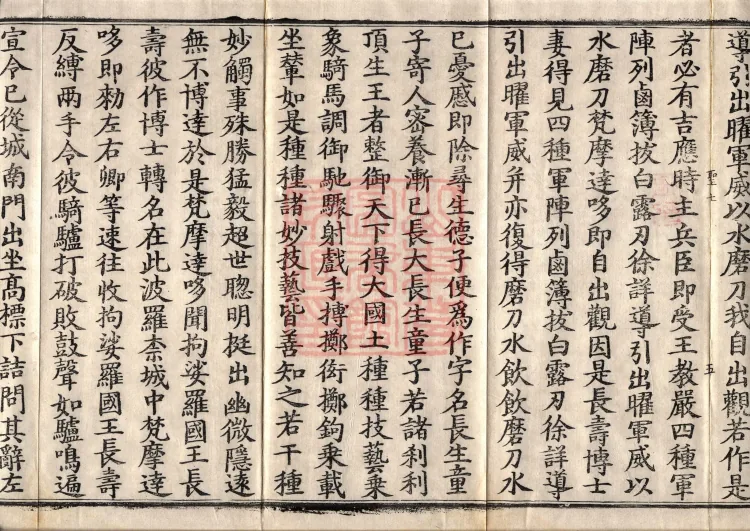 導引出曜軍威以水磨刀我自出觀若作是
聖七
五
者必有吉應時主兵臣即受王教嚴四種軍
陣列鹵簿拔白露刃徐詳導引出曜軍威以
水磨刀梵摩達哆即自出觀因是長壽博士
妻得見四種軍陣列鹵簿拔白露刃徐詳導
引出曜軍威并亦復得磨刀水飲飲磨刀水
已憂慼即除尋生德子便為作字名長生童
子寄人密養漸已長大長生童子若諸刹利
頂生王者整御天下得大國土種種技藝乗
象騎馬調御馳驟射戲手搏擲𦊰擲鉤乗載
坐輦如是種種諸妙技藝皆善知之若干種
妙觸事殊勝猛毅超世聰明挺出幽微隱遠
無不博達於是梵摩達哆聞拘娑羅國王長
壽彼作博士轉名在此波羅柰城中梵摩達
哆即勑左右卿等速往收拘娑羅國王長壽
反縛兩手令彼騎驢打破敗鼓聲如驢鳴遍
宣令已從城南門出坐高標下詰問其辭左